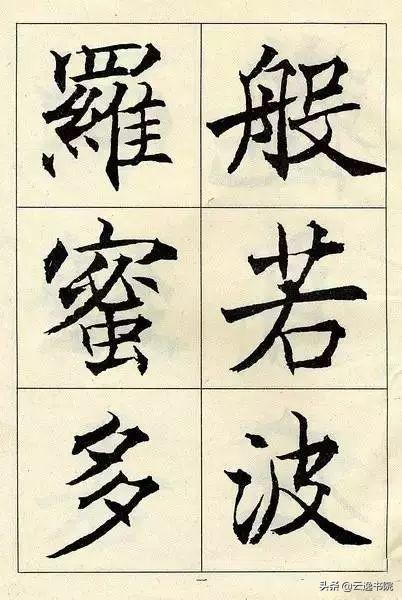 般若波
羅蜜多
一
头条 @云逸书院